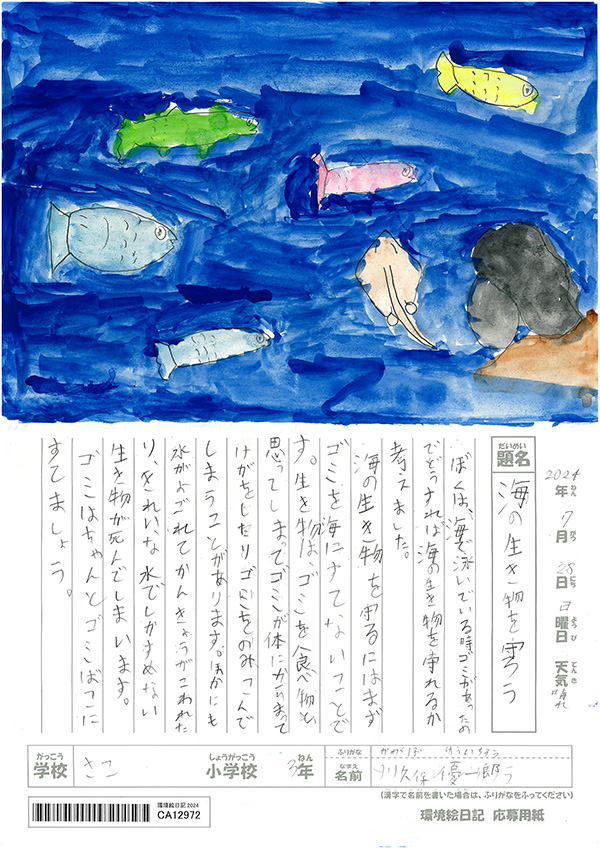 だいめい
題名
海の生き物を守ろう
2024年 7月 28日 日曜日 天気 晴れ
ねん がつ にち ようび てんき
ぼくは、海で泳いでいる時ゴミがあったの
でどうすれば海の生き物を守れるか
考えました。
海の生き物を守るにはまず
ゴミを海にすてないことで
す。生き物は、ゴミを食べ物と
思ってしまってゴミが体にからまって
けがをしたりゴミをのみこんで
しまうことがあります。ほかにも
水がよごれてかんきょうがこわれた
り、きれいな水でしかすめない
生き物が死んでしまいます。
ゴミはちゃんとゴミばこに
すてましょう。
がっこう
学校
さこ
しょうがっこう
小学校
3年
ねん
ふりがな
なまえ
名前
川久保 優一郎
(漢字で名前を書いた場合は、ふりがなをふってください)
環境絵日記 2024
CA12972
環境絵日記 応募用紙